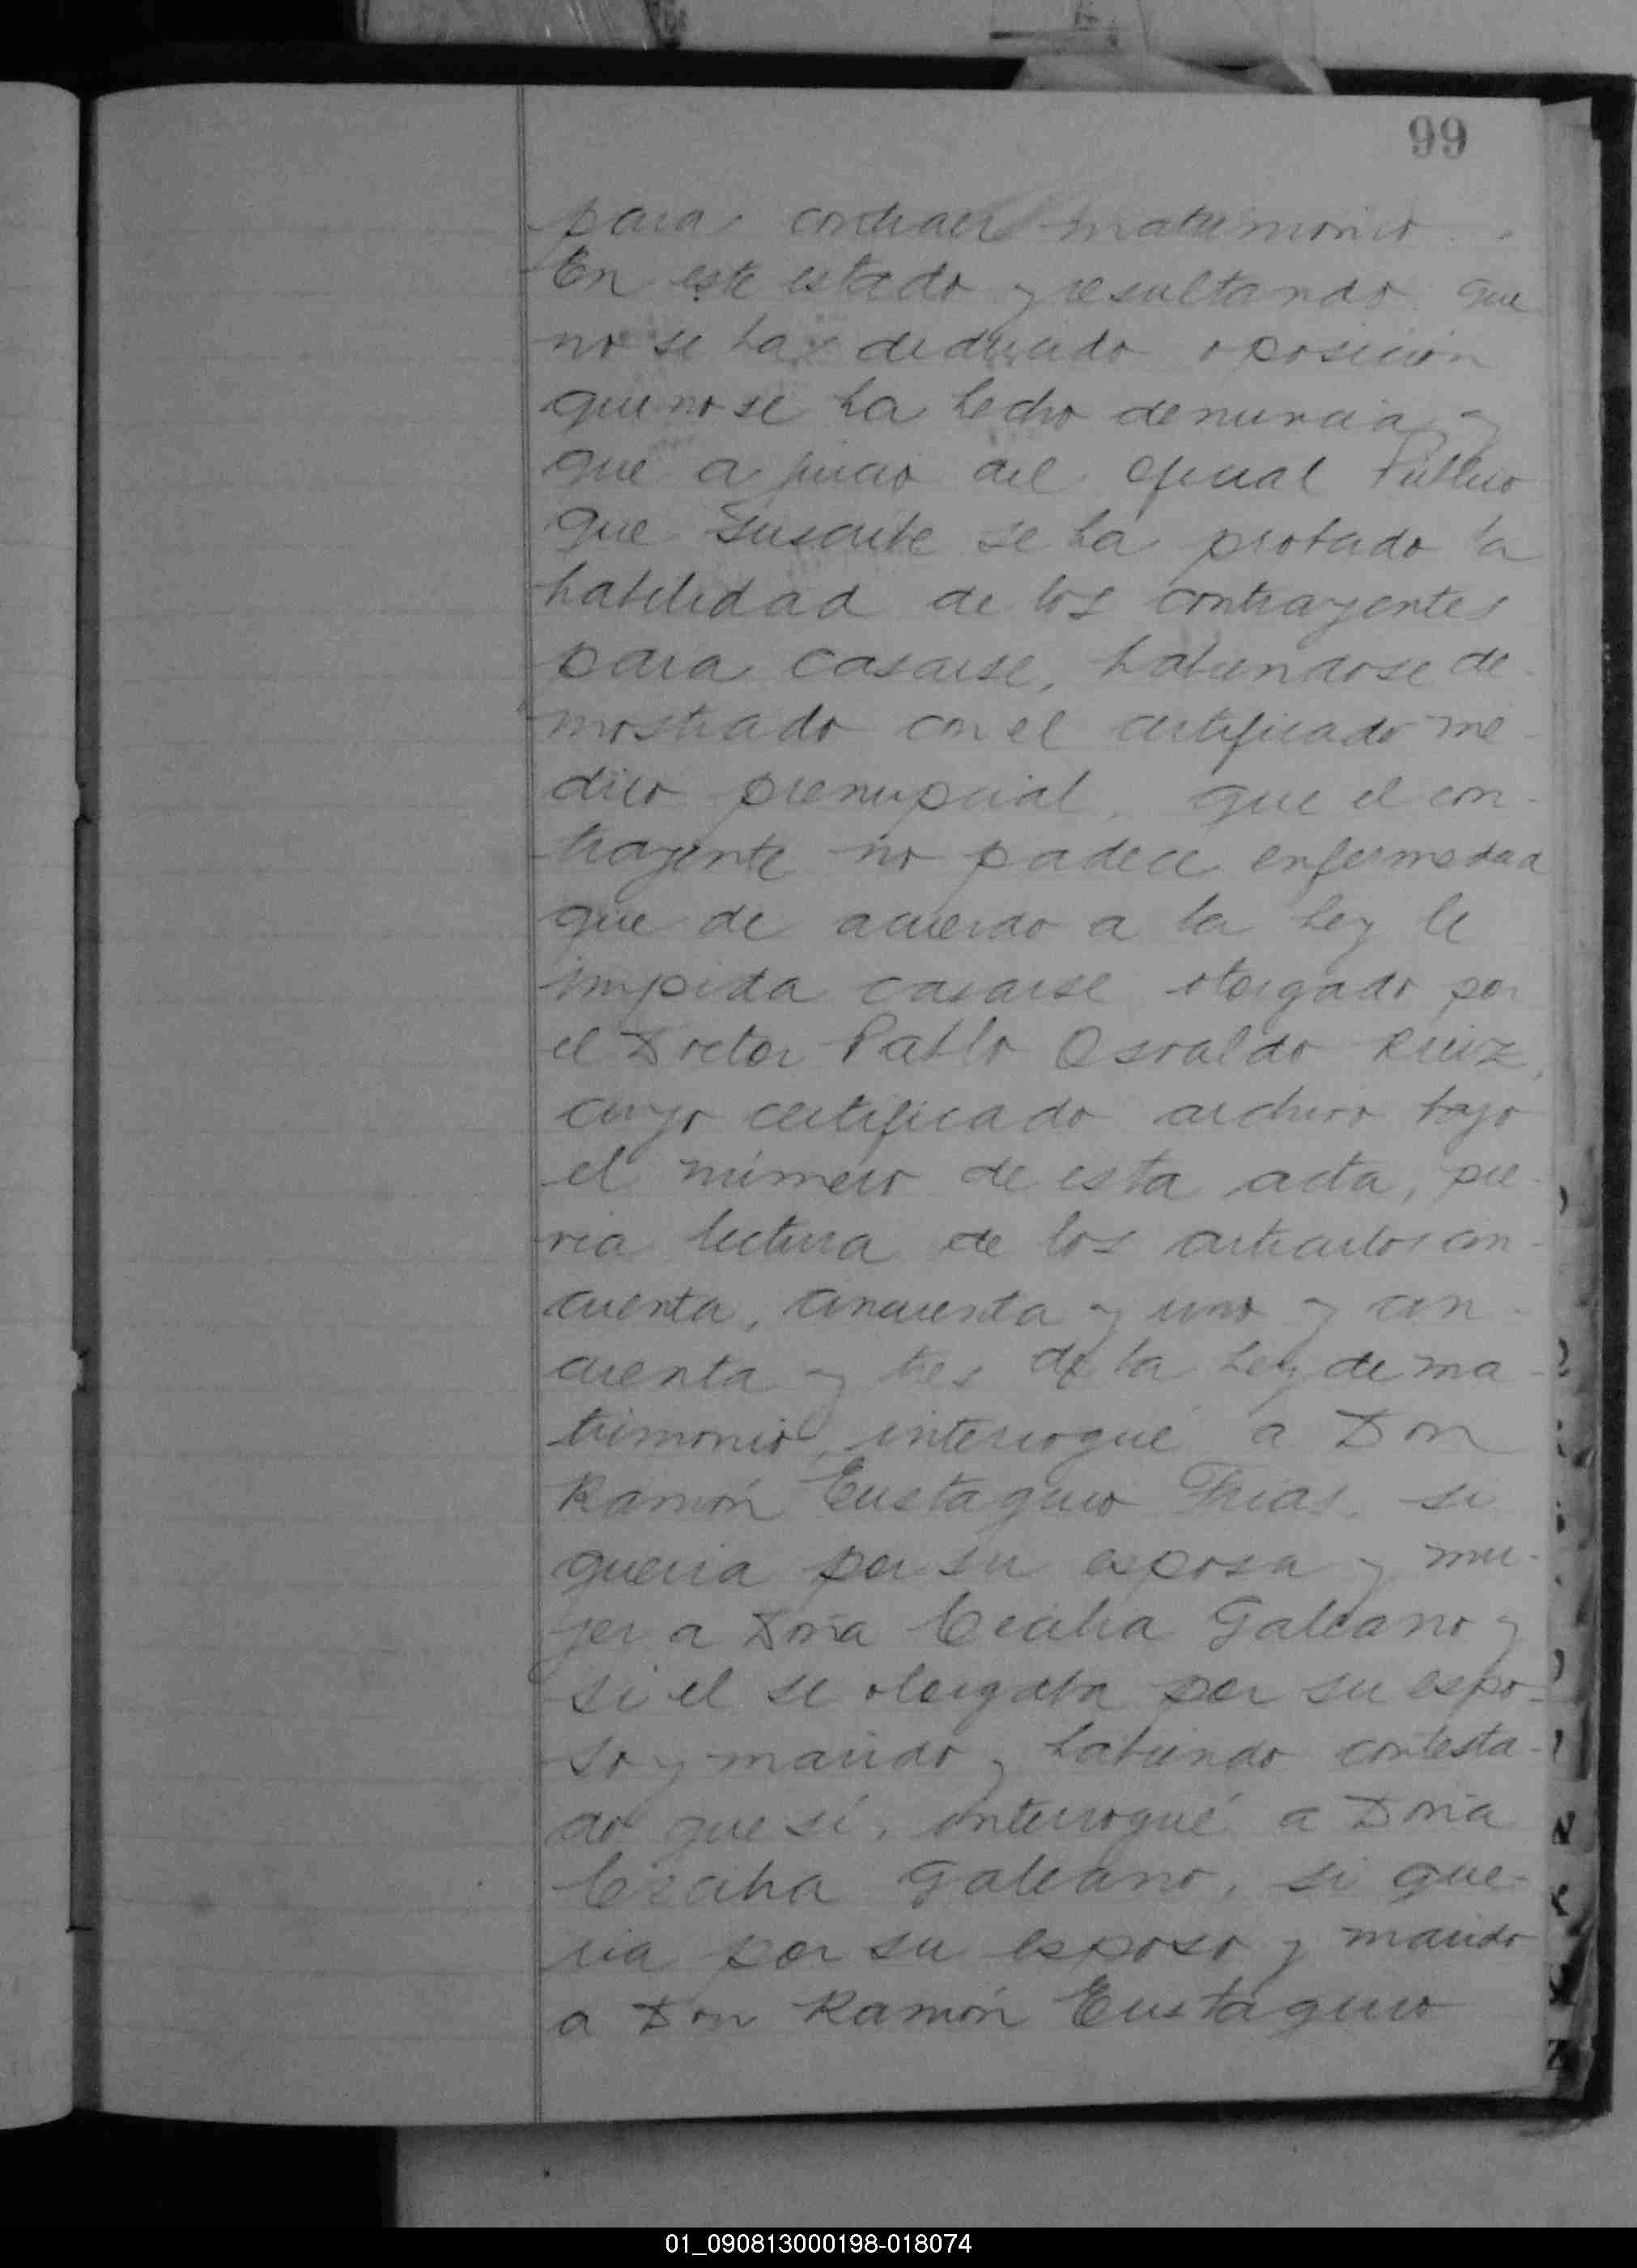 99
para contraer matrimonio.
En este estado y resultando que
no se ha deducido oposición
que no se ha hecho denuncia y
que a juicio del Oficial Público
que suscribe se ha probado la
habilidad de los contrayentes
para casarse, habiendose de-
mostrado con el certificado me-
dico prenupcial, que el con-
trayente no padece enfermedad
que de acuerdo a la Ley le
impida casarse otorgado por
el Doctor Pablo Osvaldo Ruiz,
cuyo certificado archivo bajo
el número de esta acta, pre-
via lectura de los articulos cin-
cuenta, cincuenta y uno y cin-
cuenta y tres de la Ley de ma-
trimonio, interrogué a Don
Ramón Eustaquio Frias, si
queria por su esposa y mu-
jer a Doña Cecilia Galeano y
si el se otorgaba por su espo-
so y marido y habiendo contesta-
do que sí, interrogué a Doña
Cecilia Galeano, si que-
ria por su esposo y marido
a Don Ramón Eustaquio
01_090813000198-018074